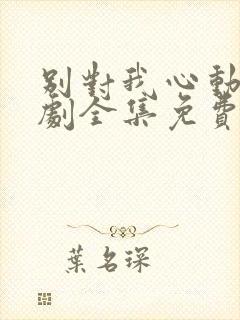 别對我心動
劇全集免費
葉名琛